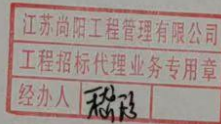 江苏尚阳工程管理有限公司
工程招标代理业务专用章
经办人